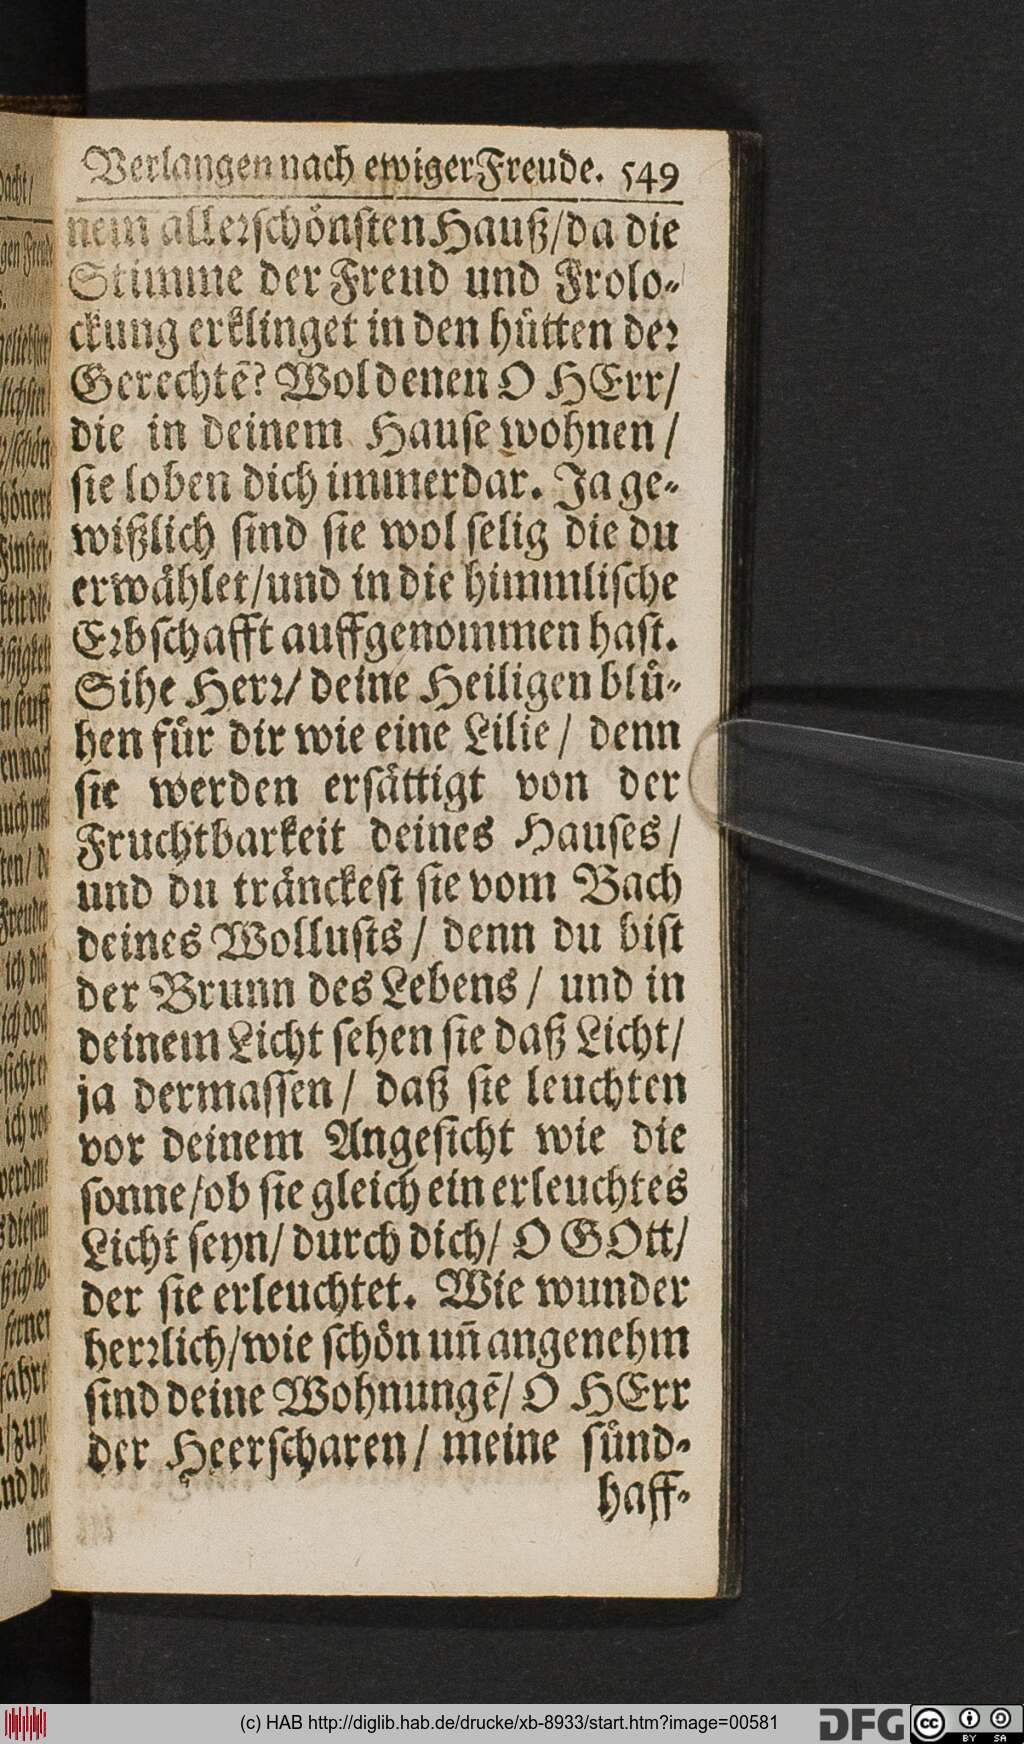 Verlangen nach ewiger Freude. 549
nem allerschönsten Hauß/da die
Stimme der Freud und Frolo-
ckung erklinget in den hütten der
Gerechtē? Wol denen O HErr/
die in deinem Hause wohnen/
sie loben dich immerdar. Ja ge-
wißlich sind sie wol selig die du
erwählet/und in die himmlische
Erbschafft auffgenommen hast.
Sihe Herr/ deine Heiligen blü-
hen für dir wie eine Lilie/ denn
sie werden ersättigt von der
Fruchtbarkeit deines Hauses/
und du tränckest sie vom Bach
deines Wollusts/ denn du bist
der Brunn des Lebens/ und in
deinem Licht sehen sie daß Licht/
ja dermassen/ daß sie leuchten
vor deinem Angesicht wie die
sonne/ob sie gleich ein erleuchtes
Licht seyn/ durch dich/ O GOtt/
der sie erleuchtet. Wie wunder
herrlich/wie schön uñ angenehm
sind deine Wohnungē/ O HErr
der Heerscharen/ meine sünd-
haff-
(c) HAB http://diglib.hab.de/drucke/xb-8933/start.htm?image=00581
DFG
cc BY SA